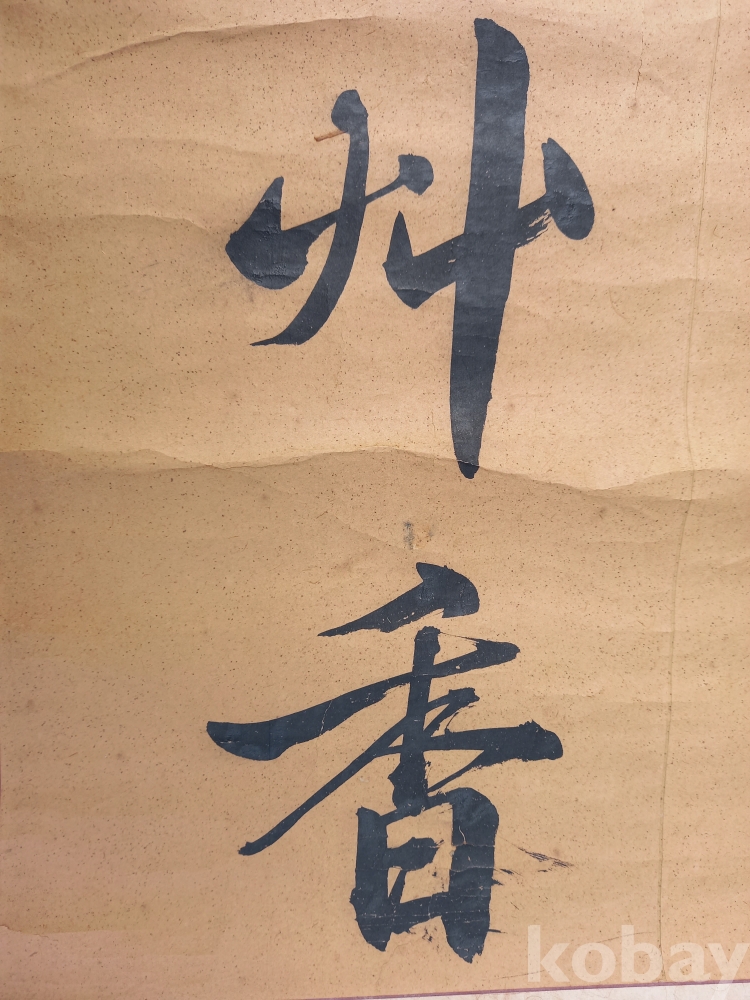 艸
香
kobay